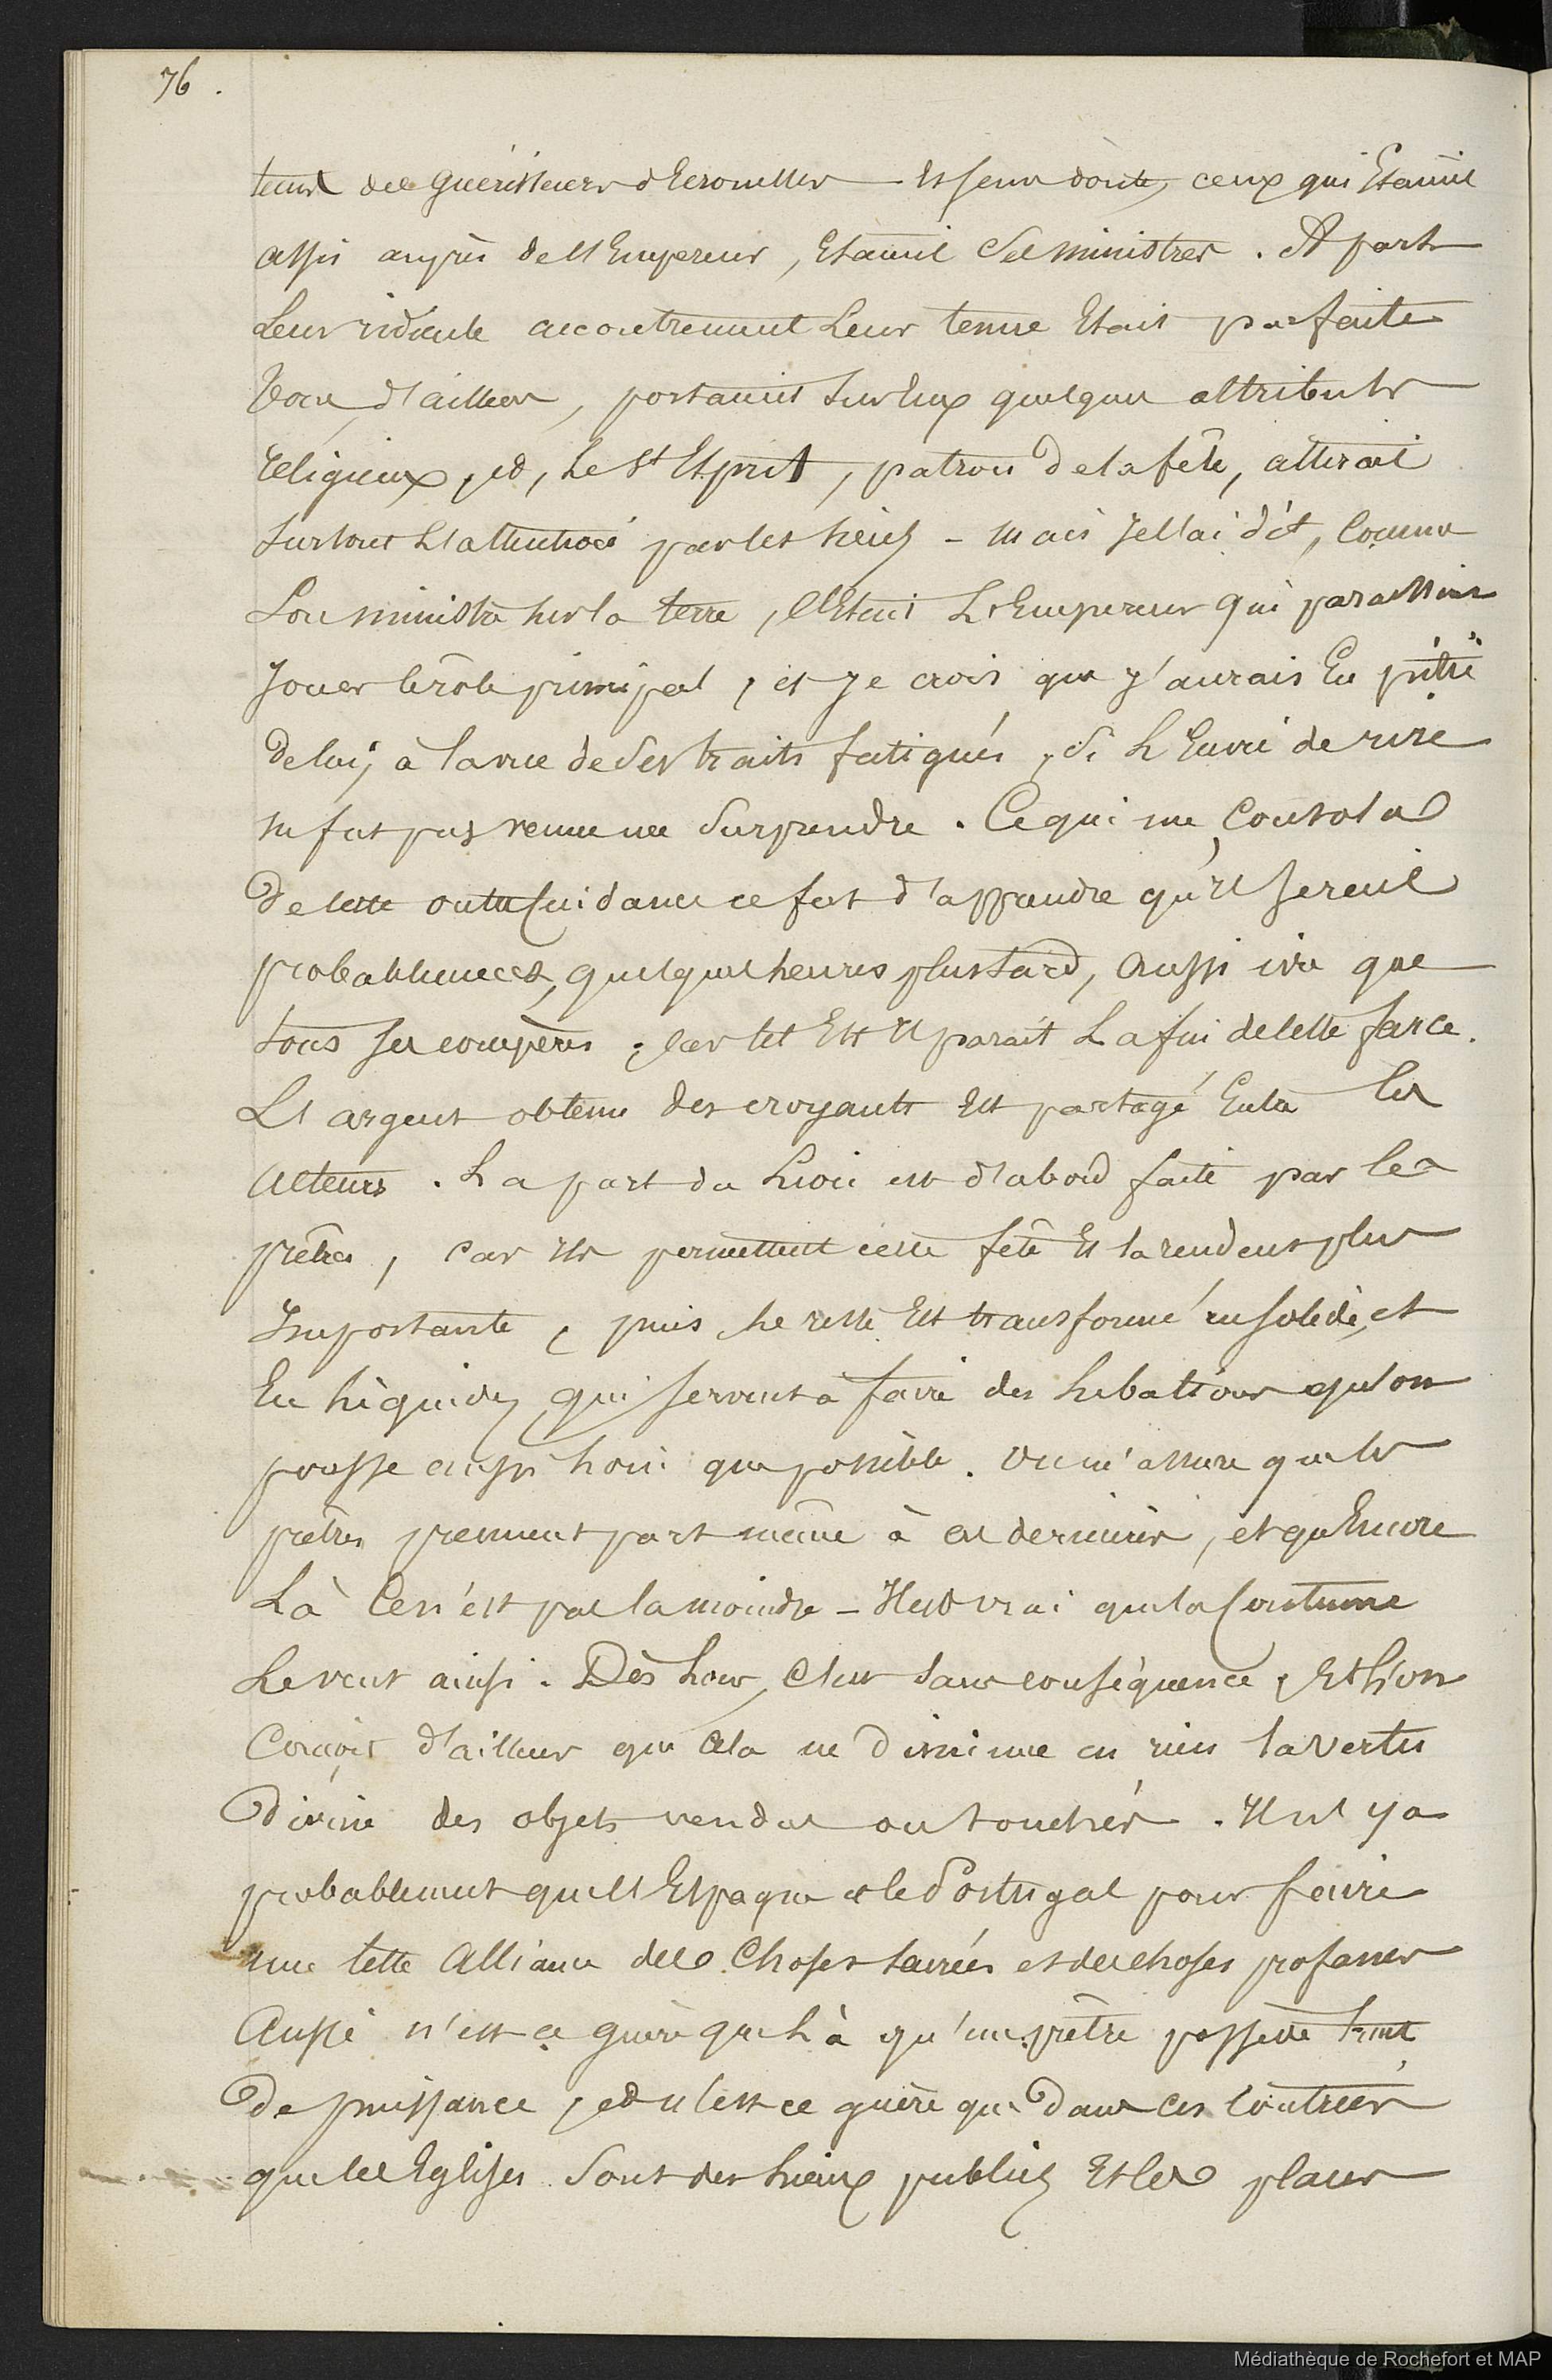 76.
teurs des guérisseurs d'Ecrouelles – Et sans doute, ceux qui Etaient
assis auprès de l'Empereur, Etaient ses ministres. A part
Leur ridicule accoutrement Leur tenue Etait parfaite
Tous d'ailleurs, portaient sur Eux quelques attributs
religieux, et, Le St Esprit, patron de la fête, attirait
surtout L'attention par les siens – Mais je l'ai dit, Comme
Son ministre sur la terre, C'Etait L'Empereur qui paraissait
Jouer le rôle principal, et je crois que j'aurais Eu pitié
De lui, à la vue de ses traits fatigués, si L'Envie de rire
ne fut pas venue me surprendre. Ce qui me Consola
De cette outrecuidance ce fut d'apprendre qu'il serait
probablement, quelques heures plus tard, aussi ivre que
tous ses compères, Car tel Est il parait La fin de cette farce.
L'argent obtenu des croyants Est partagé Entre les
acteurs. La part du Lion est d'abord faite par les
prêtres, car ils permettent cette fête Et la rendent plus
Importante, puis, le reste Est transformé en solide, et
En liquides, qui servent à faire des Libations qu'on
pousse aussi loin que possible. On m'assure que les
prêtres prennent part même à ces dernières, et qu'Encore
Là Ce n'est pas la moindre – Il est vrai que la Coutume
Le veut ainsi. Dès Lors, C'est sans conséquence, Et l'on
Conçoit d'ailleurs que Cela ne diminue en rien la vertu
Divine des objets vendus ou touchés. Il n'y a
probablement que l'Espagne et le Portugal pour faire
une telle Alliance des Choses sacrées et des choses profanes
Aussi n'est-ce guère que Là qu'un prêtre possède tant
De puissance, et n'est-ce guère que Dans ces Contrées
que les Eglises sont des Lieux publics Et les places
Médiathèque de Rochefort et MAP